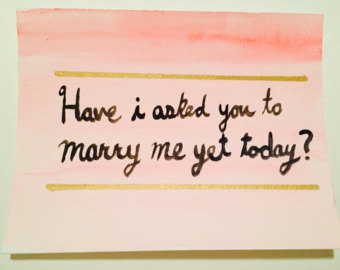 Have i asked you to
marry me yet today?